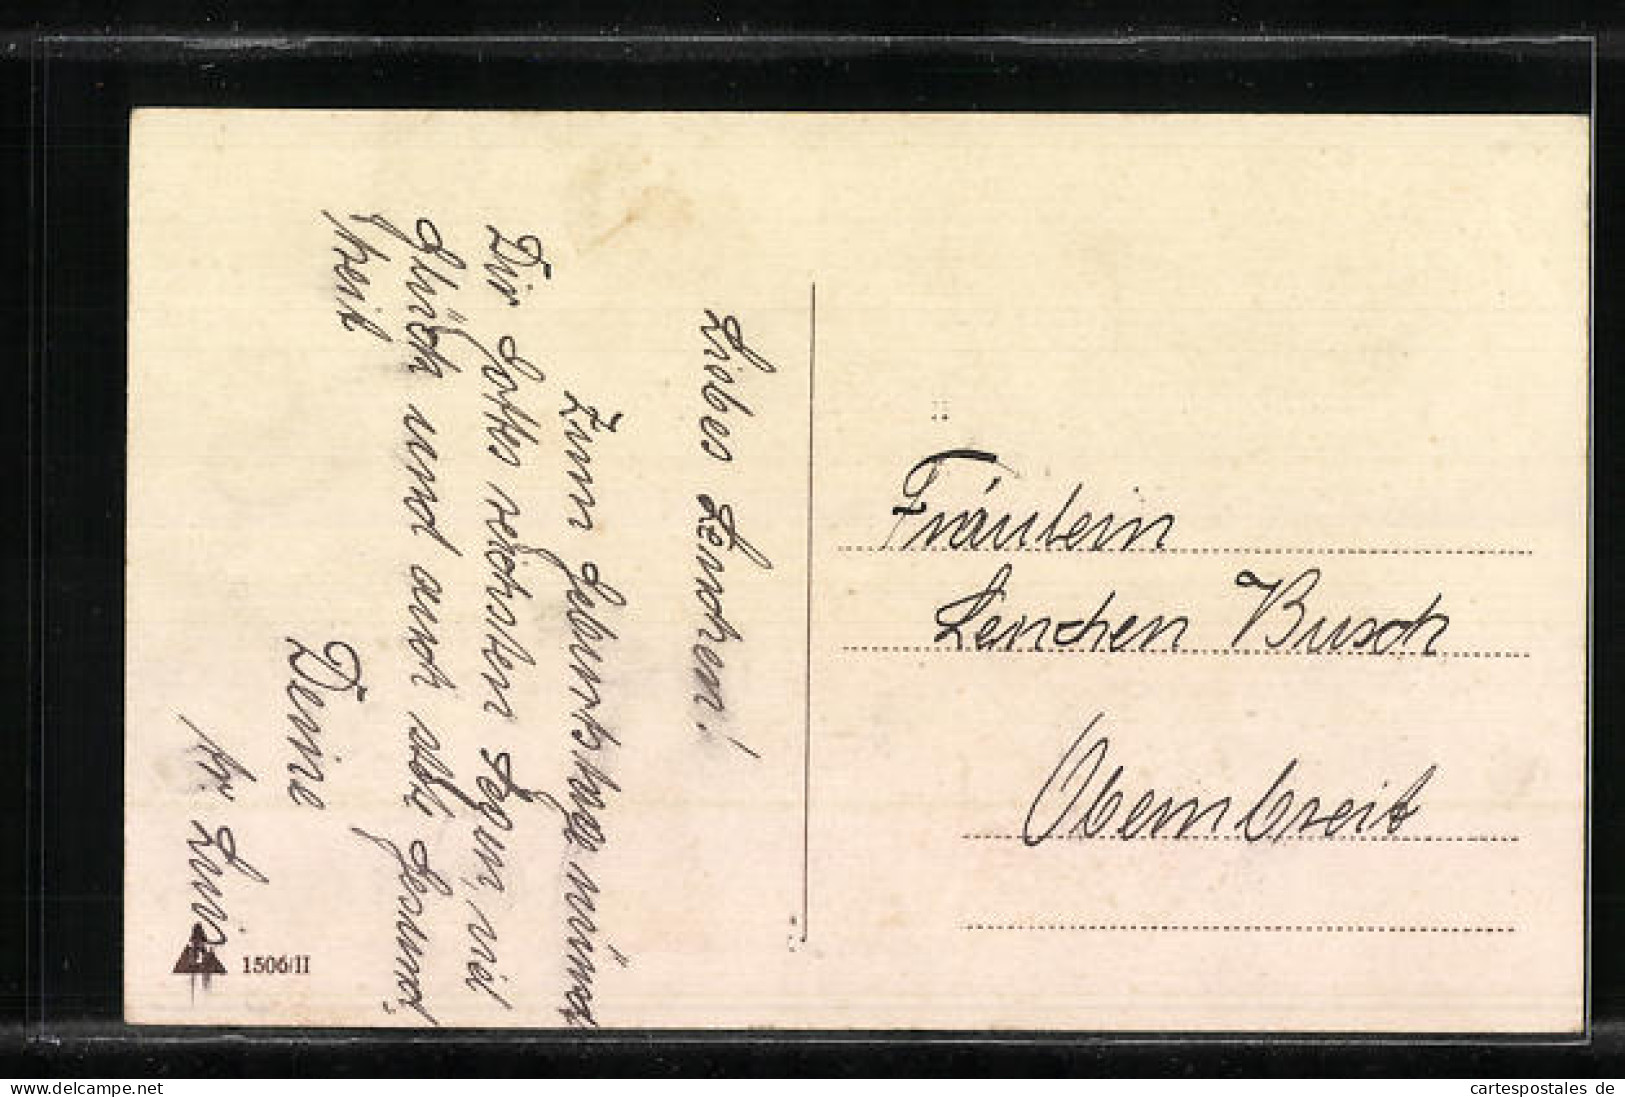 Liebes Lenchen!
Zum Geburtstage wünscht
Dir Gottes reichsten Segen, viel
Glück und auch viel Gesund,
heit
Deine
Fr. Luise
1506/II
Fräulein
Lenchen Busch
Obernbreit
www.delcampe.net
cartespostales de